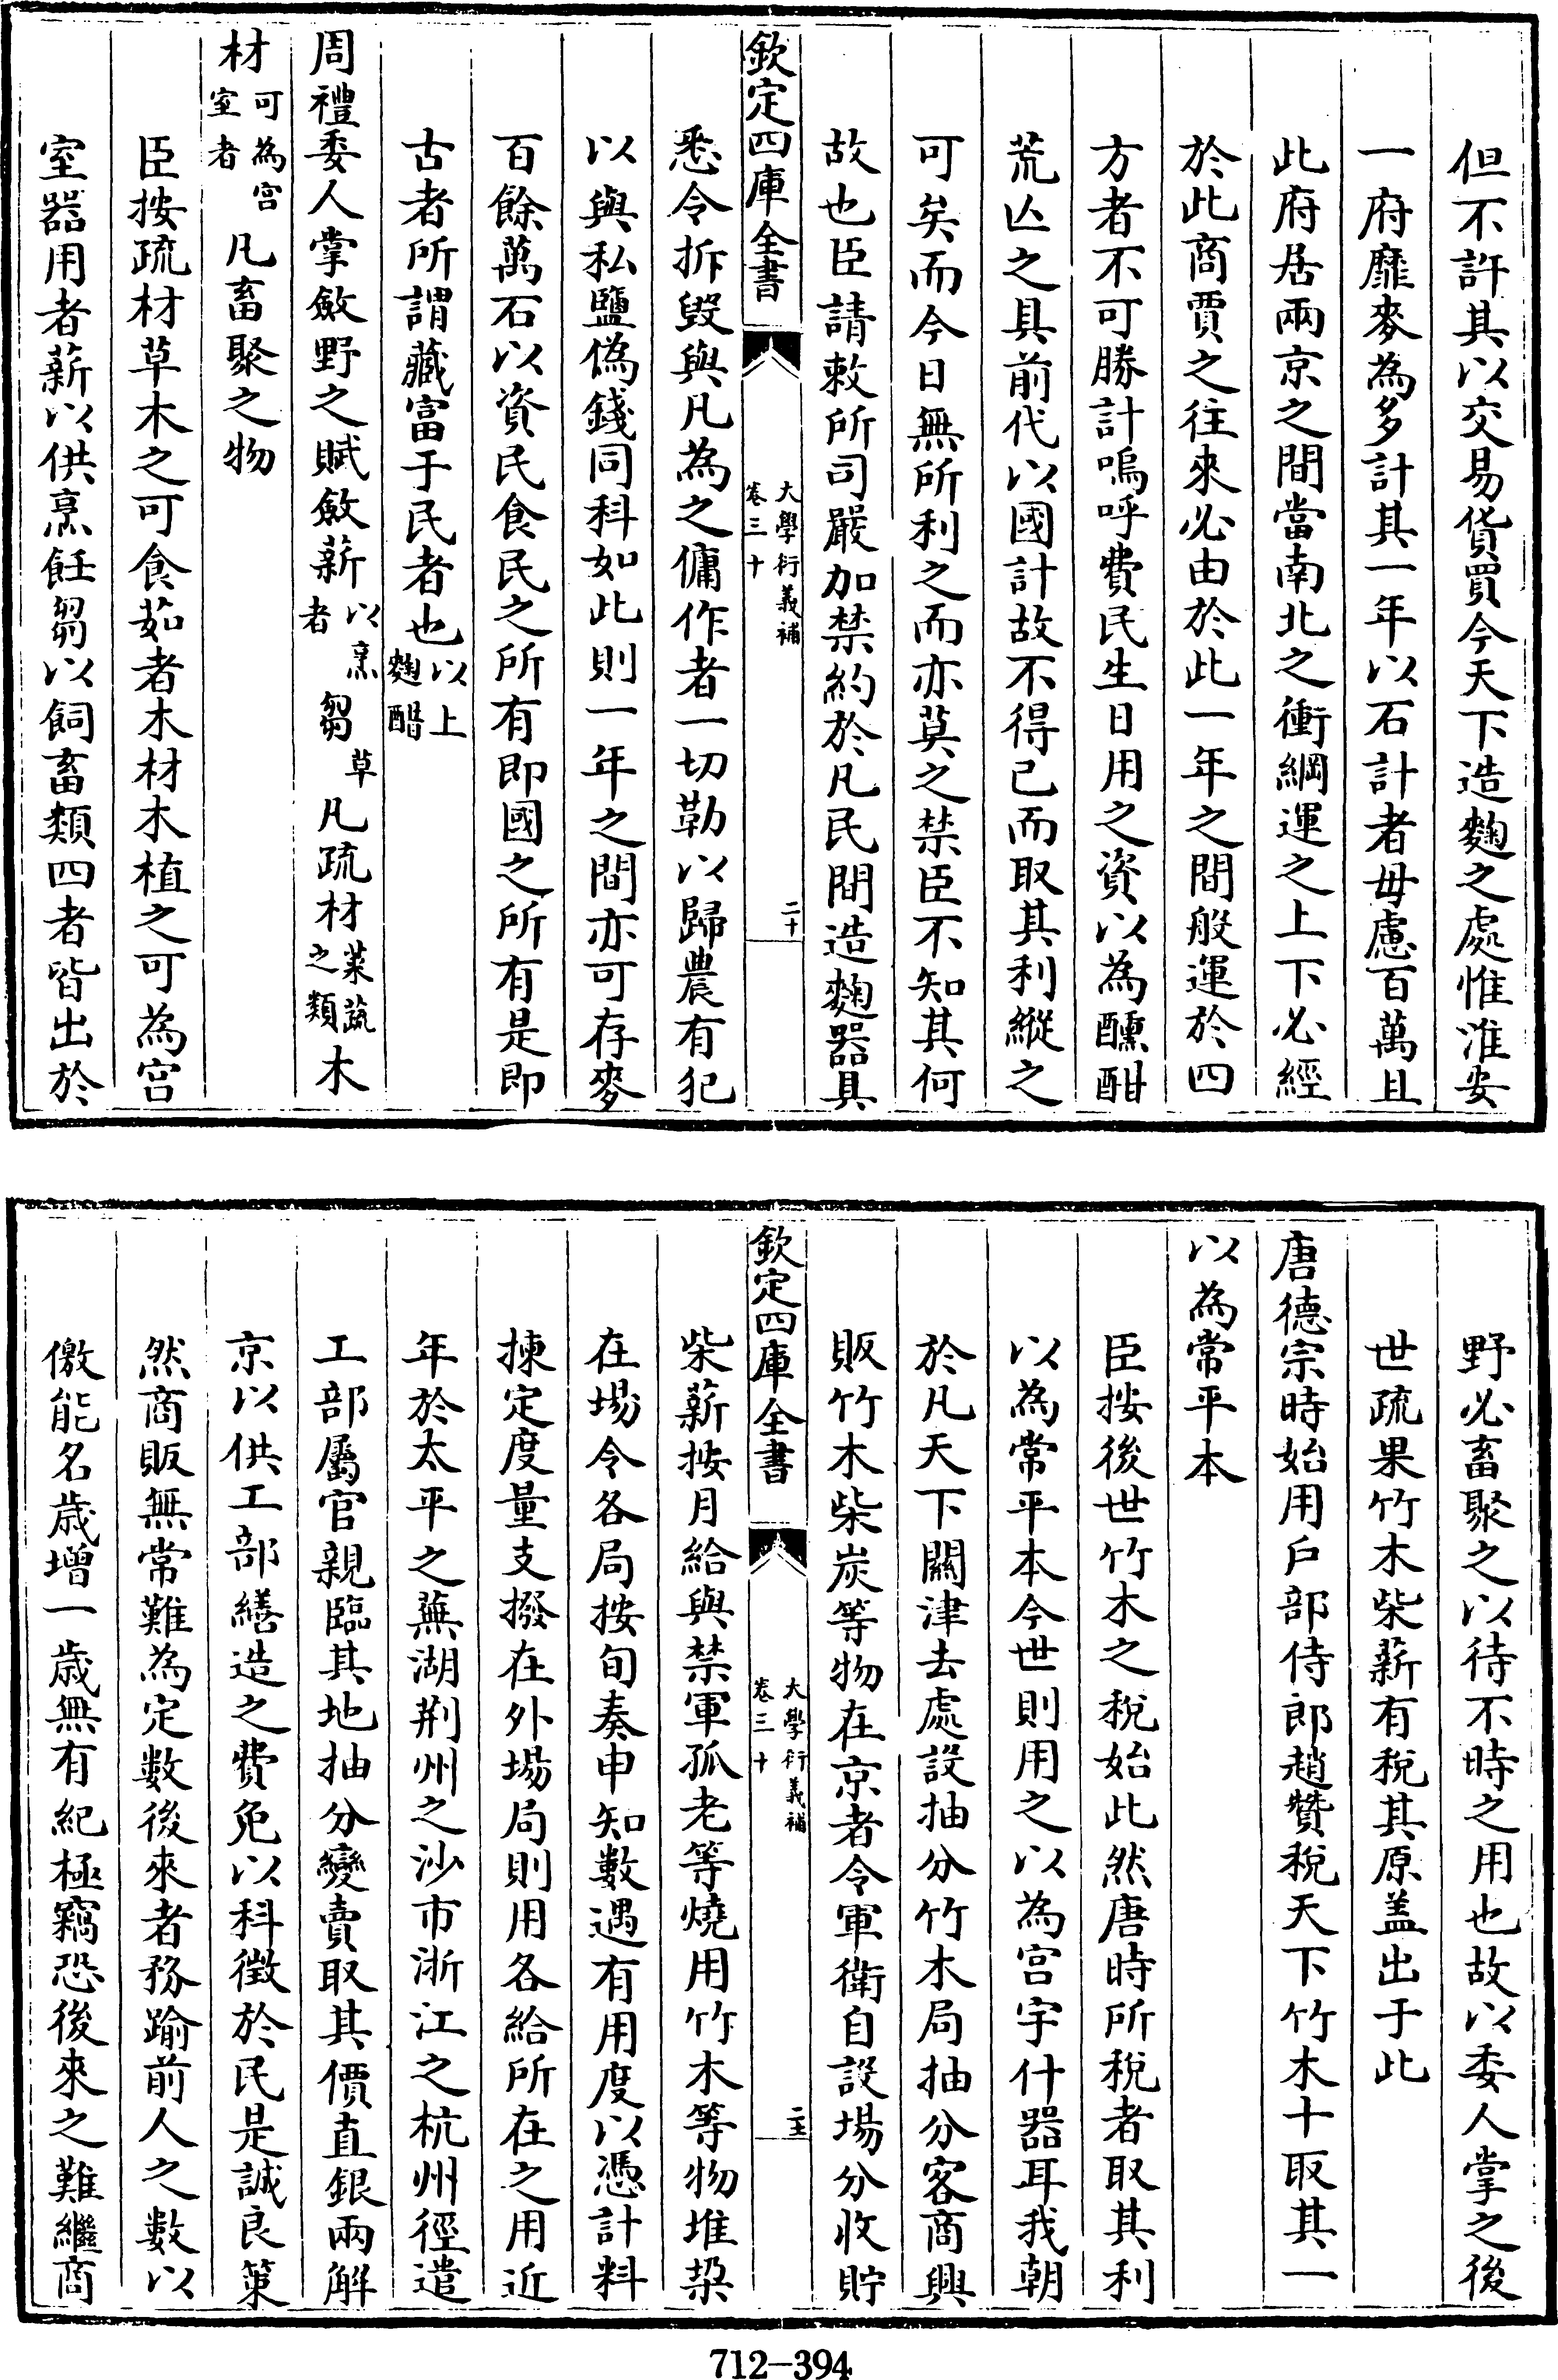 但不許其以交易貨買今天下造麴之處惟淮安
一府靡麥為多計其一年以石計者毋慮百萬且
此府居兩京之間當南北之衝綱運之上下必經
於此商賈之往來必由於此一年之間般運於四
方者不可勝計嗚呼費民生日用之資以為醺酣
荒亾之具前代以國計故不得已而取其利縱之
可矣而今日無所利之而亦莫之禁臣不知其何
故也臣請敕所司嚴加禁約於凡民間造麴器具
欽定四庫全書 大學衍義補 卷三十 二十
悉令拆毀與凡為之傭作者一切勒以歸農有犯
以與私鹽偽錢同科如此則一年之間亦可存麥
百餘萬石以資民食民之所有即國之所有是即
古者所謂藏富于民者也以上麴醋
周禮委人掌斂野之賦斂薪以烹者芻草凡疏材菜蔬之類木
材可為宮室者凡畜聚之物
臣按疏材草木之可食茹者木材木植之可為宮
室器用者薪以供烹飪芻以飼畜類四者皆出於
野必畜聚之以待不時之用也故以委人掌之後
世疏果竹木柴薪有稅其原盖出于此
唐德宗時始用戶部侍郎趙贊稅天下竹木十取其一
以為常平本
臣按後世竹木之稅始此然唐時所稅者取其利
以為常平本今世則用之以為宮宇什器耳我朝
於凡天下關津去處設抽分竹木局抽分客商興
販竹木柴炭等物在京者令軍衛自設場分收貯
欽定四庫全書 大學衍義補 卷三十 二十一
柴薪按月給與禁軍孤老等燒用竹木等物堆垜
在場令各局按旬奏申知數遇有用度以憑計料
揀定度量支撥在外場局則用各給所在之用近
年於太平之蕪湖荆州之沙市浙江之杭州徑遣
工部屬官親臨其地抽分變賣取其價直銀兩解
京以供工部繕造之費免以科徴於民是誠良策
然商販無常難為定數後來者務踰前人之數以
儌能名歲增一歲無有紀極竊恐後來之難繼商
712-394